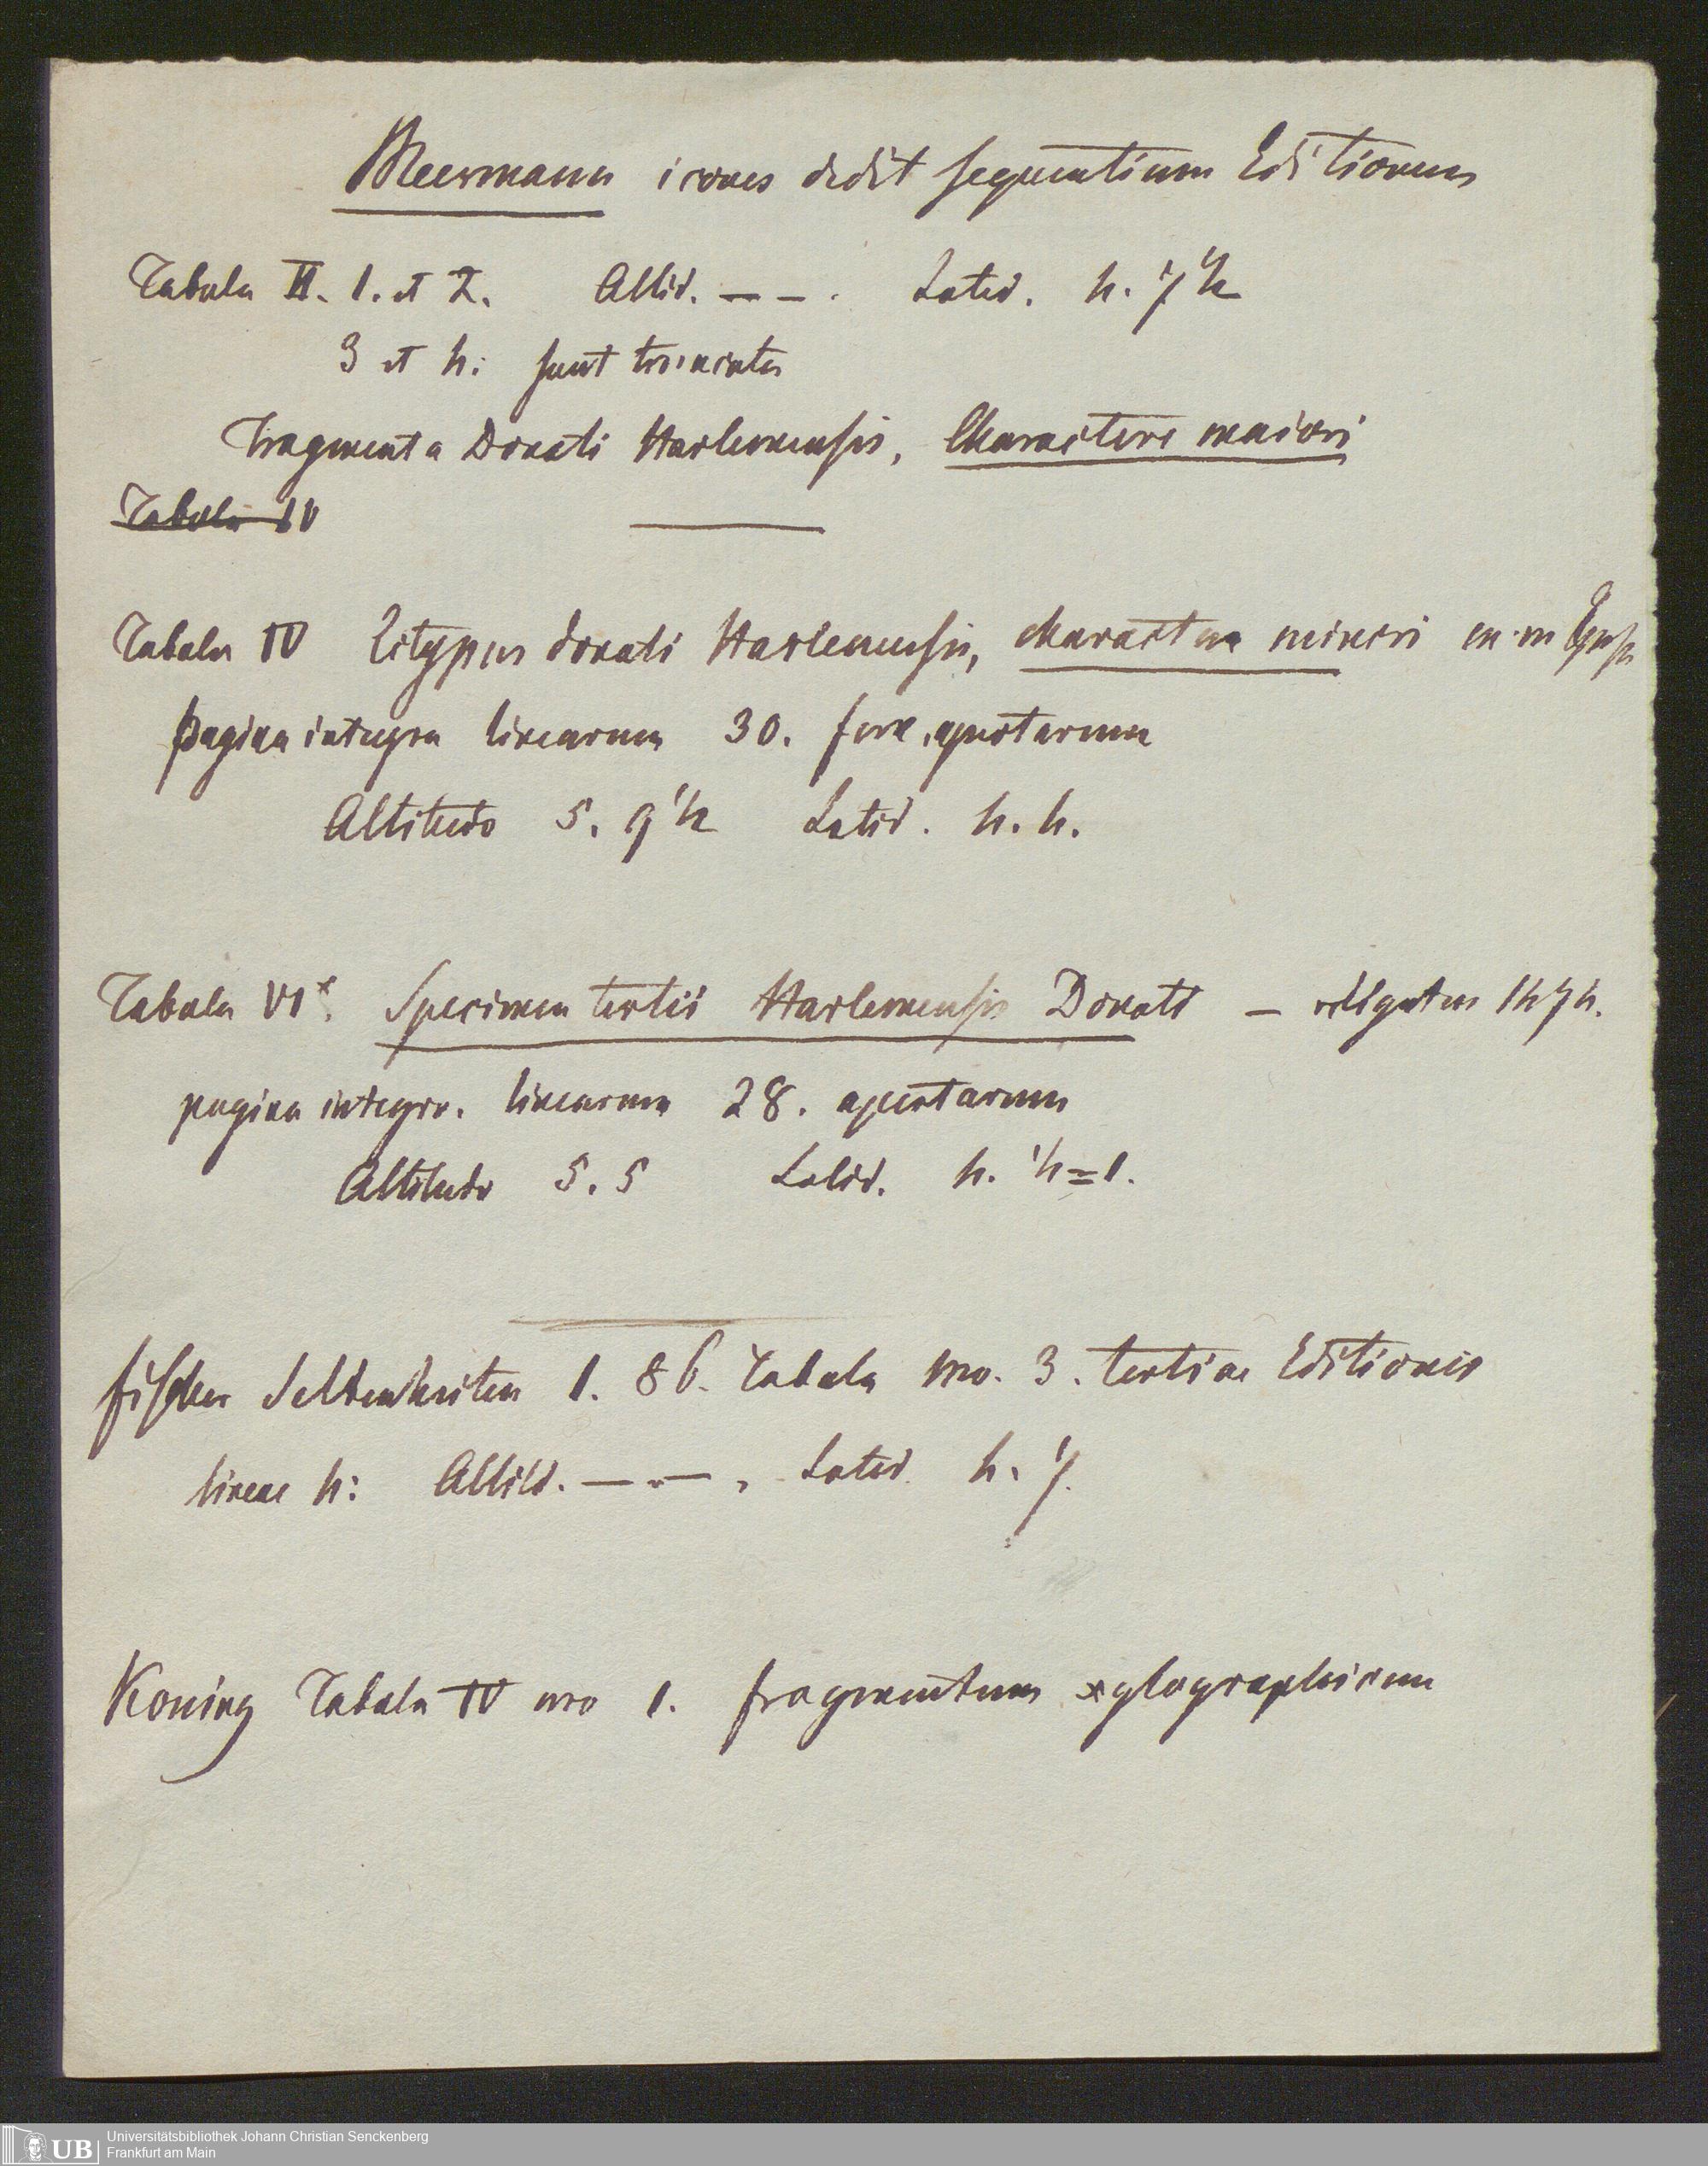 Meermann icones dedit sequentium Editionum
Tabula II. 1. et 2. Altid. — — . Latid. 4. 7 1/2
3 et 4: sunt truncata
Fragmenta Donati Harlemensis, Charactere maiori
Tabula IV
Tabula IV Ectypus donati Harlemensis, charactere minori
pagina integra linearum 30. apertarum
Altitudo 5. 9 1/2 Latid. 4. 4.
Tabula VI*. Specimen tertii Harlemensis Donati — religatus 1474.
pagina integra. linearum 28. apertarum
Altitudo 5. 5 Latid. 4. 1/2=1.
Fischer Seltenheiten 1. 86. Tabula nro. 3. tertiae Editionis
lineae 4: Altid. — — , Latid. 4. 7.
Koning Tabula IV nro 1. fragmentum xylographicum
UB
Universitätsbibliothek Johann Christian Senckenberg
Frankfurt am Main